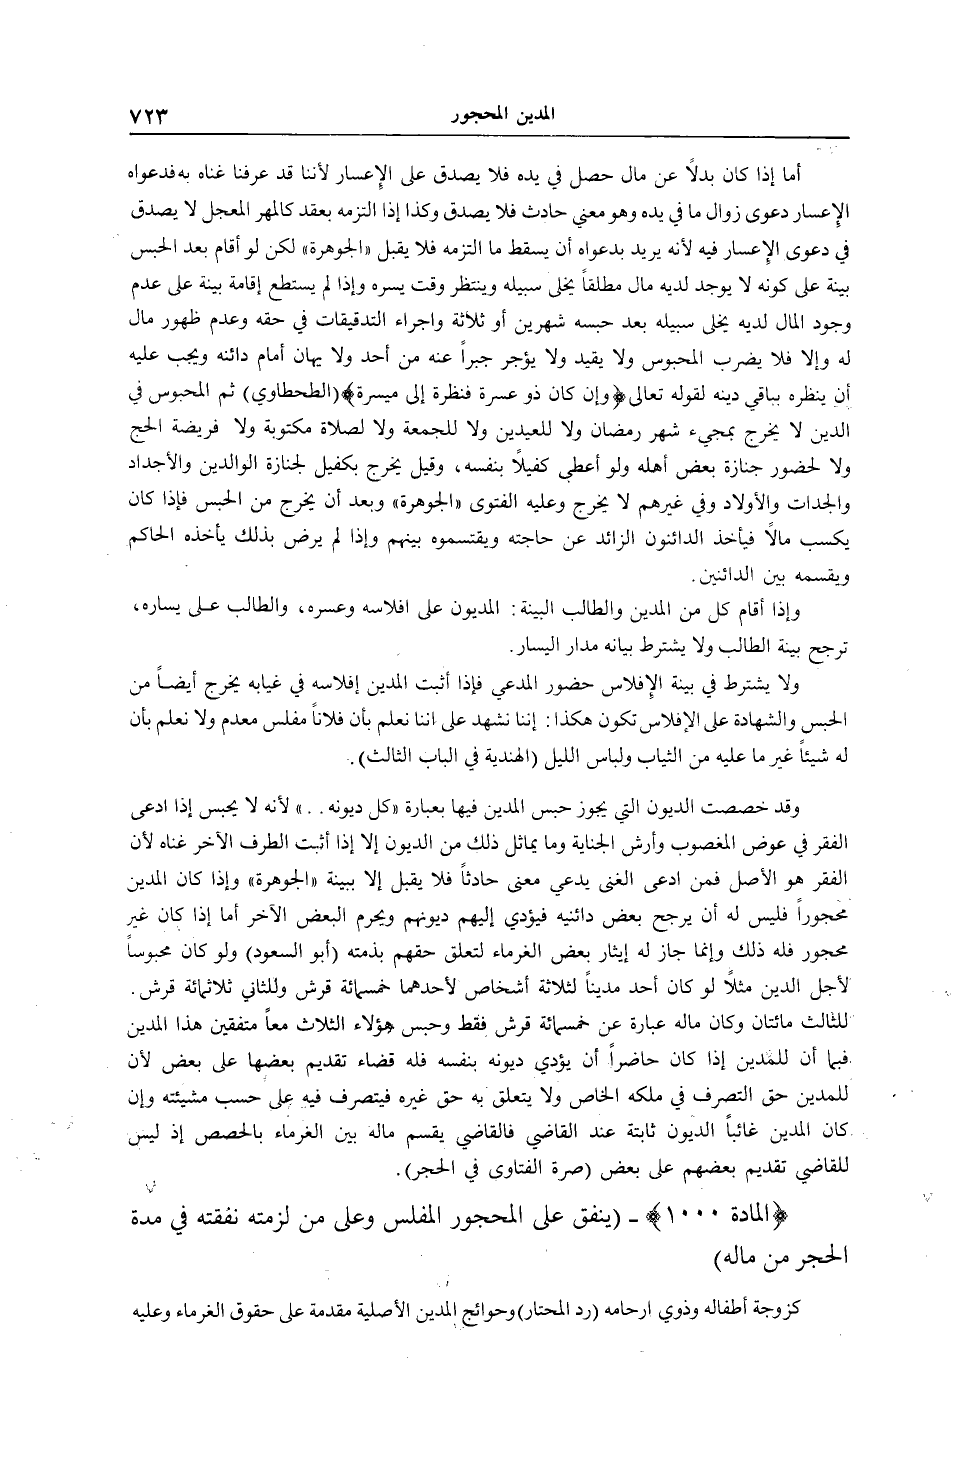 المدين المحجور ٧٢٣
أما إذا كان بدلًا عن مال حصل في يده فلا يصدق على الإعسار لأننا قد عرفنا غناه به فدعواه
الإعسار دعوى زوال ما في يده وهو معنى حادث فلا يصدق وكذا إذا التزمه بعقد كالمهر المعجل لا يصدق
في دعوى الإعسار فيه لأنه يريد بدعواه أن يسقط ما التزمه فلا يقبل «الجوهرة» لكن لو أقام بعد الحبس
بينة على كونه لا يوجد لديه مال مطلقاً يخلى سبيله وينتظر وقت يسره وإذا لم يستطع إقامة بينة على عدم
وجود المال لديه يخلى سبيله بعد حبسه شهرين أو ثلاثة واجراء التدقيقات في حقه وعدم ظهور مال
له وإلا فلا يضرب المحبوس ولا يقيد ولا يؤجر جبراً عنه من أحد ولا يهان أمام دائنه ويجب عليه
أن ينظره بباقي دينه لقوله تعالى ﴿وإن كان ذو عسرة فنظرة إلى ميسرة﴾ (الطحطاوي) ثم المحبوس في
الدين لا يخرج بمجيء شهر رمضان ولا للعيدين ولا للجمعة ولا لصلاة مكتوبة ولا فريضة الحج
ولا لحضور جنازة بعض أهله ولو أعطى كفيلًا بنفسه، وقيل يخرج بكفيل لجنازة الوالدين والأجداد
والجدات والأولاد وفي غيرهم لا يخرج وعليه الفتوى «الجوهرة» وبعد أن يخرج من الحبس فإذا كان
يكسب مالًا فيأخذ الدائنون الزائد عن حاجته ويقتسموه بينهم وإذا لم يرض بذلك يأخذه الحاكم
ويقسمه بين الدائنين.
وإذا أقام كل من المدين والطالب البينة: المديون على افلاسه وعسره، والطالب على يساره،
ترجح بينة الطالب ولا يشترط بيانه مدار اليسار.
ولا يشترط في بينة الإفلاس حضور المدعي فإذا أثبت المدين إفلاسه في غيابه يخرج أيضاً من
الحبس والشهادة على الإفلاس تكون هكذا: إننا نشهد على اننا نعلم بأن فلاناً مفلس معدم ولا نعلم بأن
له شيئاً غير ما عليه من الثياب ولباس الليل (الهندية في الباب الثالث).
وقد خصصت الديون التي يجوز حبس المدين فيها بعبارة «كل ديونه . .» لأنه لا يحبس إذا ادعى
الفقر في عوض المغصوب وأرش الجناية وما يماثل ذلك من الديون إلا إذا أثبت الطرف الآخر غناه لأن
الفقر هو الأصل فمن ادعى الغنى يدعي معنى حادثاً فلا يقبل إلا ببينة «الجوهرة» وإذا كان المدين
محجوراً فليس له أن يرجح بعض دائنيه فيؤدي إليهم ديونهم ويحرم البعض الآخر أما إذا كان غير
محجور فله ذلك وإنما جاز له إيثار بعض الغرماء لتعلق حقهم بذمته (أبو السعود) ولو كان محبوساً
لأجل الدين مثلًا لو كان أحد مديناً لثلاثة أشخاص لأحدهما خمسمائة قرش وللثاني ثلاثمائة قرش.
للثالث مائتان وكان ماله عبارة عن خمسمائة قرش فقط وحبس هؤلاء الثلاث معاً متفقين هذا المدين
فبما أن للمدين إذا كان حاضراً أن يؤدي ديونه بنفسه فله قضاء تقديم بعضها على بعض لأن
للمدين حق التصرف في ملكه الخاص ولا يتعلق به حق غيره فيتصرف فيه على حسب مشيئته وإن
كان المدين غائباً الديون ثابتة عند القاضي فالقاضي يقسم ماله بين الغرماء بالحصص إذ ليس
للقاضي تقديم بعضهم على بعض (صرة الفتاوى في الحجر).
﴿المادة ١٠٠٠﴾ ـ (ينفق على المحجور المفلس وعلى من لزمته نفقته في مدة
الحجر من ماله)
كزوجة أطفاله وذوي ارحامه (رد المحتار) وحوائج المدين الأصلية مقدمة على حقوق الغرماء وعليه